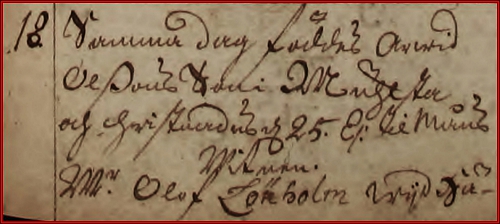 18. Samma dag föddes Arvid
Olssons Son i
och Christnades d 25. Ej: til
Witnen.
Mr. Olof Löfholm wijd